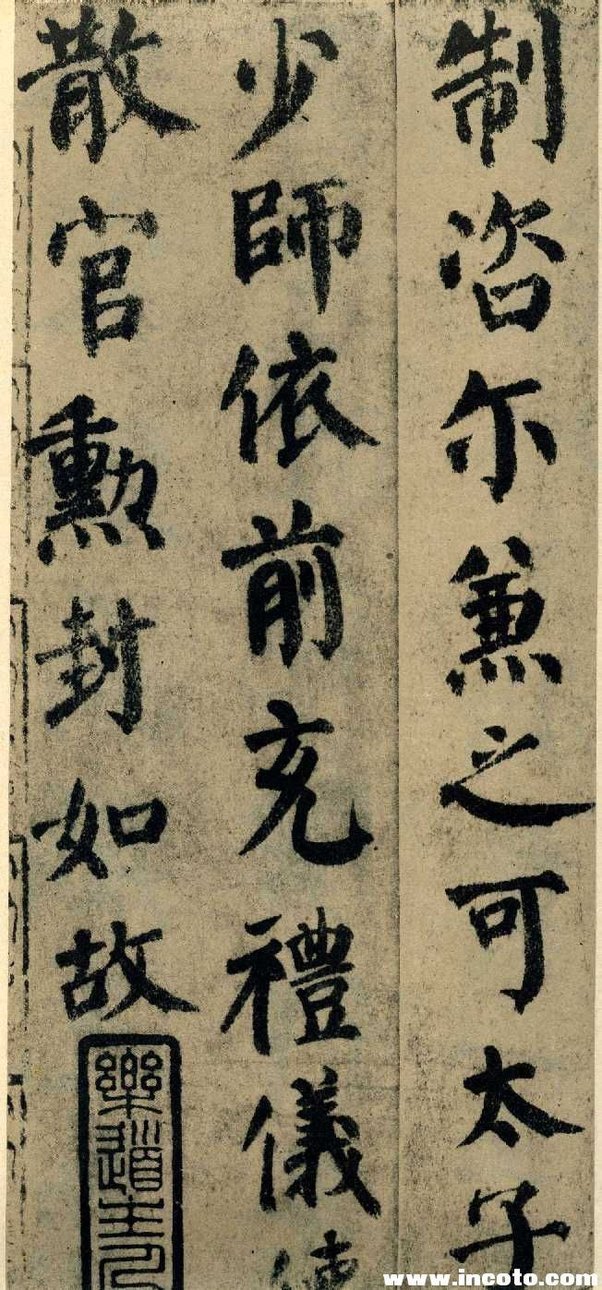 制咨尔兼之可太子
少師依前充禮儀使
散官勳封如故
www.incoto.com